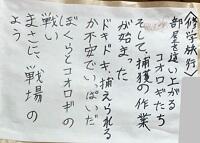 〈修学旅行〉
部屋を這い上がる
コオロギたち
そして、捕獲の作業
が始まった
ドキドキ、捕えられる
か不安でいっぱいだ
ぼくらとコオロギの
戦い
まさに、戦場の
よう